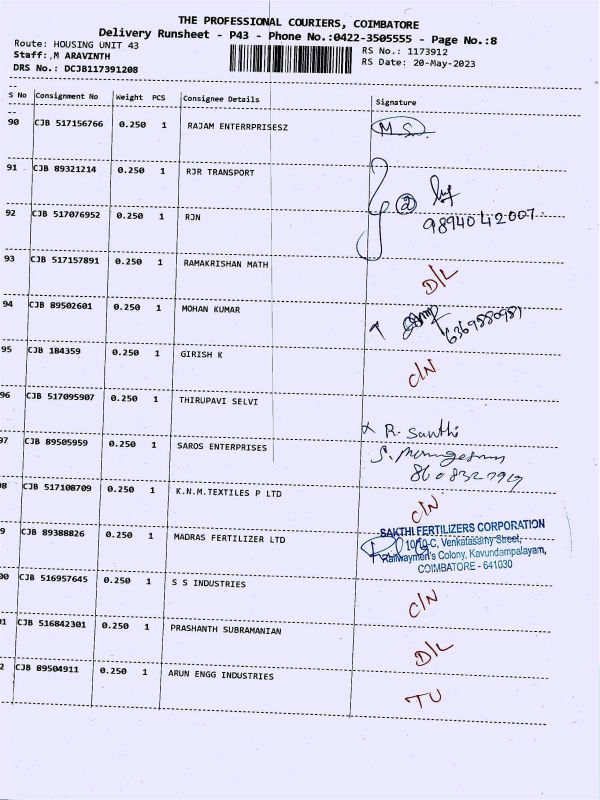 THE PROFESSIONAL COURIERS, COIMBATORE
Delivery Runsheet - P43 - Phone No.:0422-3505555 - Page No.:8
Route: HOUSING UNIT 43
RS No.: 1173912
Staff:,M ARAVINTH
RS Date: 20-May-2023
DRS No.: DCJB117391208
S No Consignment No Weight PCS Consignee Details Signature
90 CJB 517156766 0.250 1 RAJAM ENTERRPRISESZ M S
91 CJB 89321214 0.250 1 RJR TRANSPORT
2
92 CJB 517076952 0.250 1 RJN 9894042007
93 CJB 517157891 0.250 1 RAMAKRISHAN MATH D/L
94 CJB 89502601 0.250 1 MOHAN KUMAR 6369880981
95 CJB 184359 0.250 1 GIRISH K C/N
96 CJB 517095907 0.250 1 THIRUPAVI SELVI X R. Santhi
97 CJB 89505959 0.250 1 SAROS ENTERPRISES
8608327919
8 CJB 517108709 0.250 1 K.N.M.TEXTILES P LTD C/N
9 CJB 89388826 0.250 1 MADRAS FERTILIZER LTD
SAKTHI FERTILIZERS CORPORATION
10/10-C, Venkatasamy Street,
Railwaymen's Colony, Kavundampalayam,
COIMBATORE - 641030
00 CJB 516957645 0.250 1 S S INDUSTRIES C/N
01 CJB 516842301 0.250 1 PRASHANTH SUBRAMANIAN D/L
2 CJB 89504911 0.250 1 ARUN ENGG INDUSTRIES TU